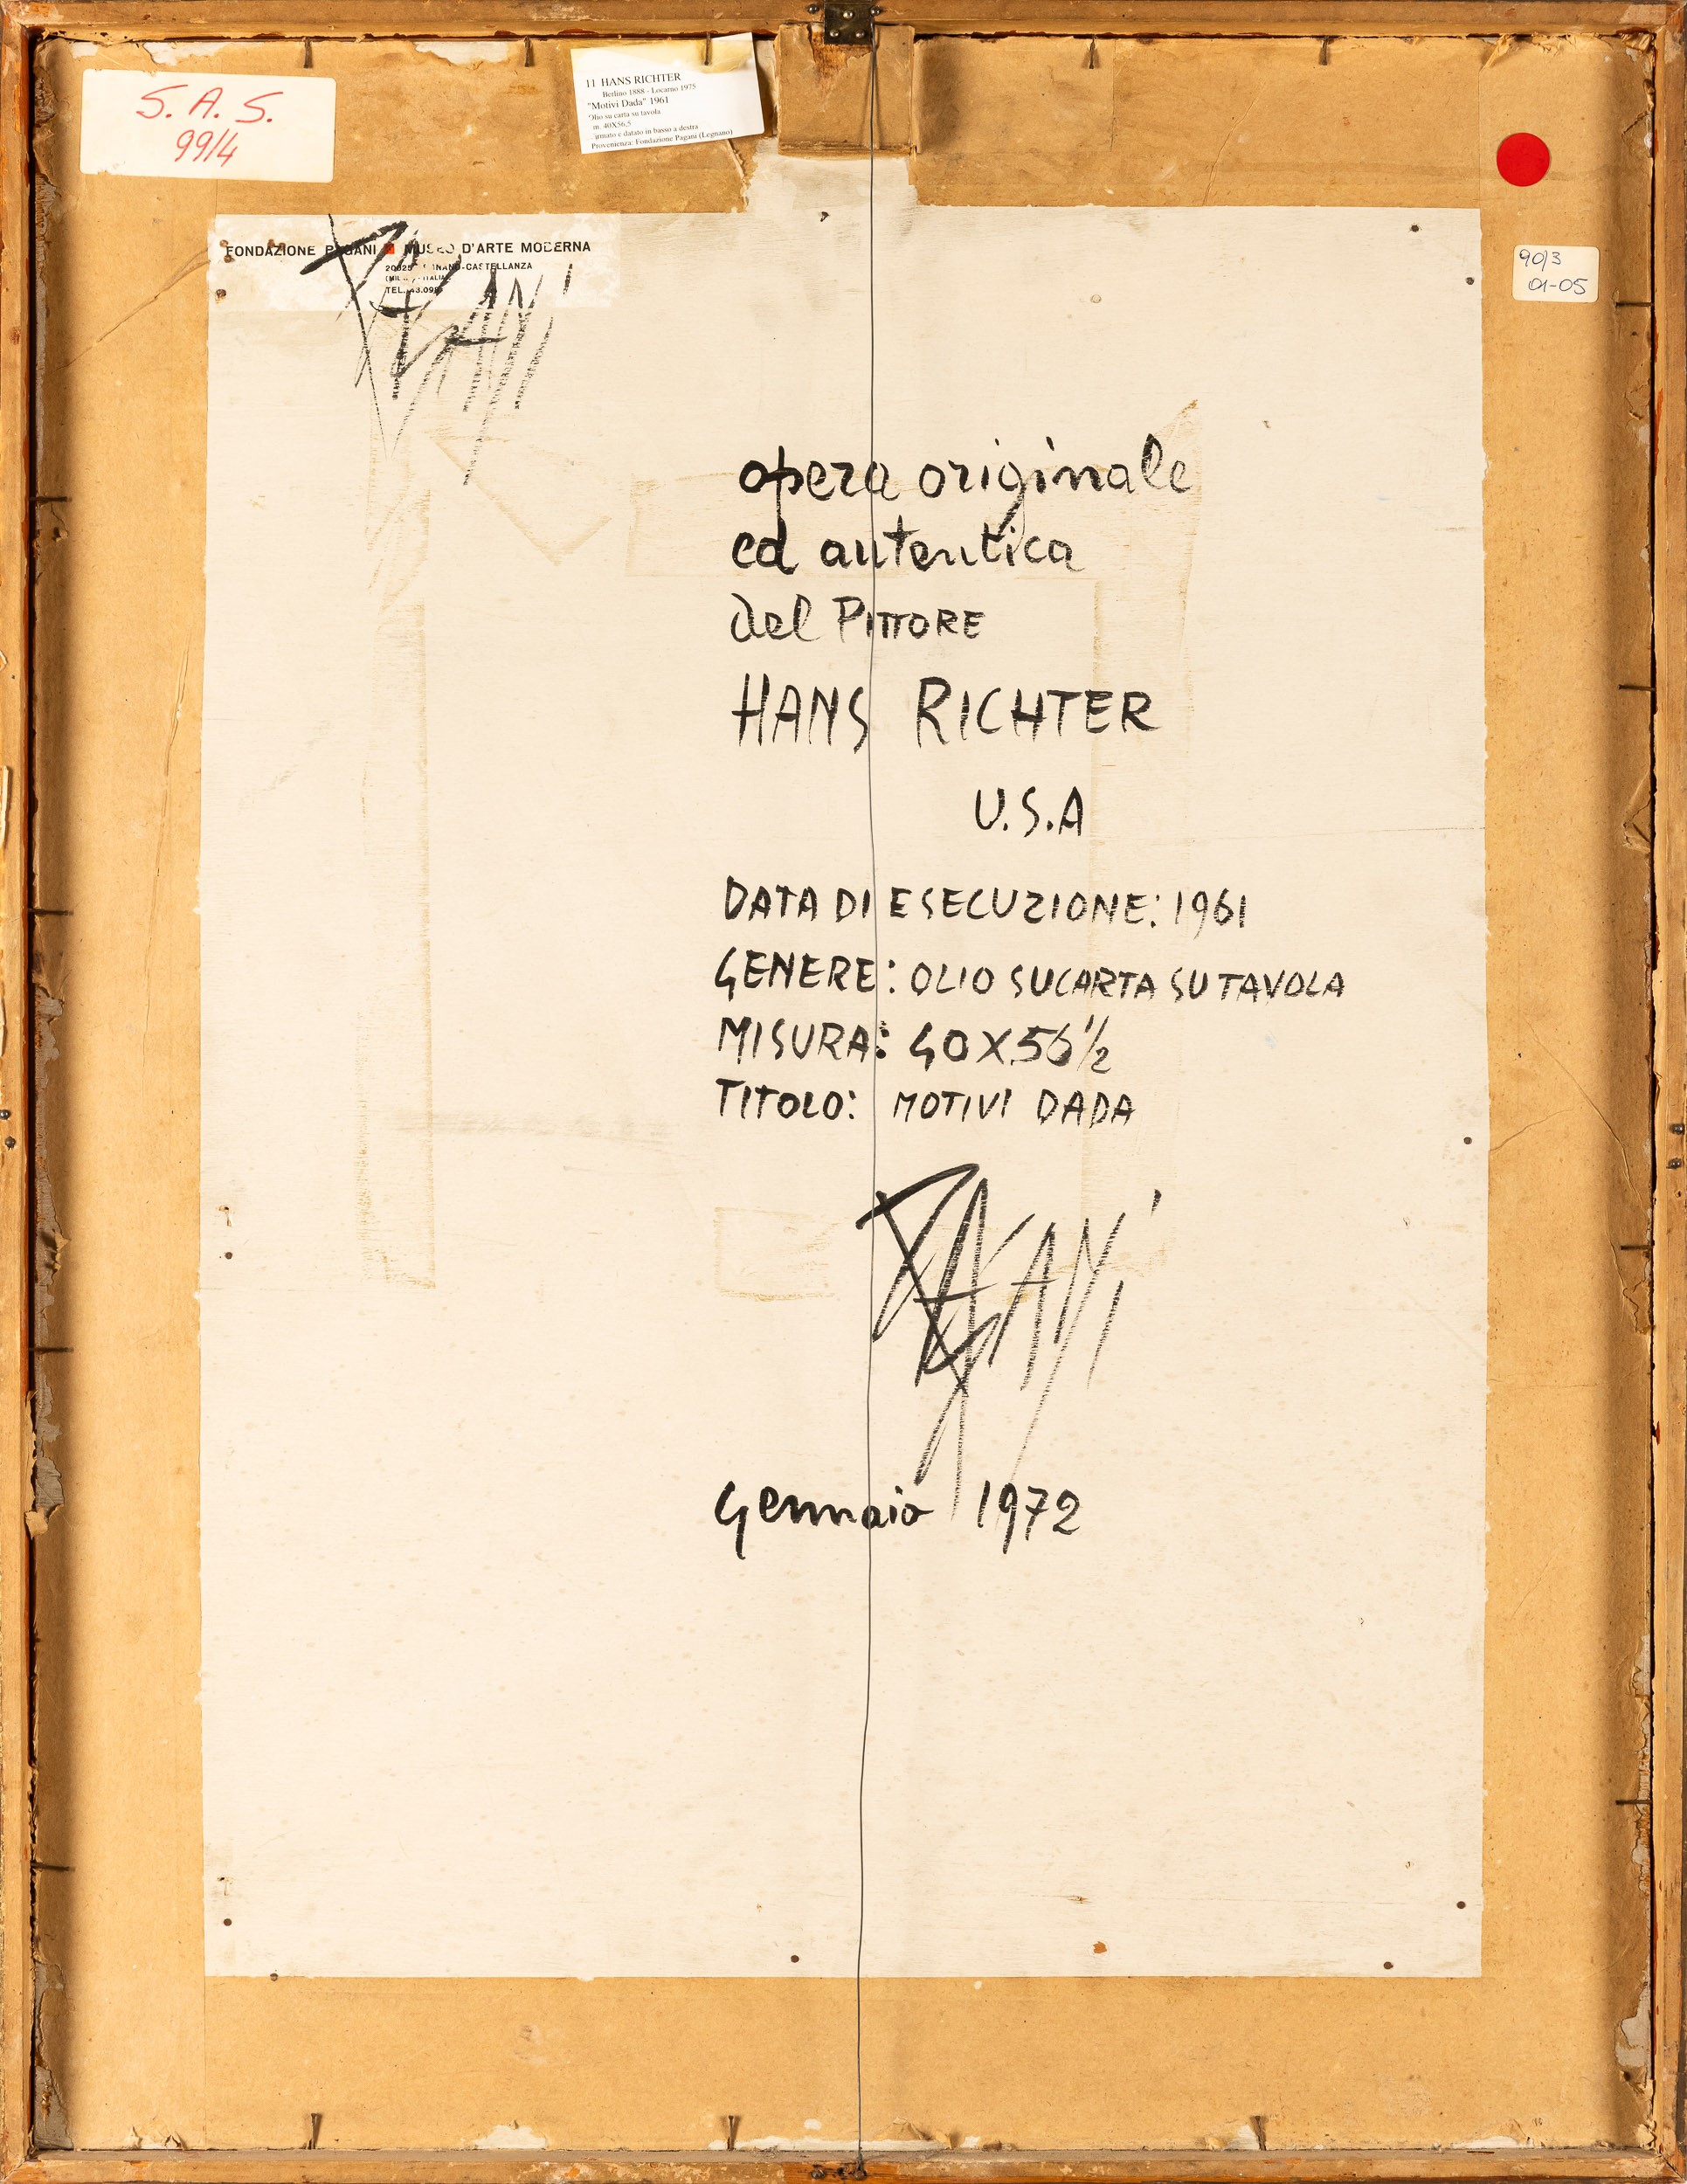 S. A. S.
99/4
11 HANS RICHTER
Berlino 1888 - Locarno 1975
"Motivi Dada" 1961
Olio su carta su tavola
m. 40X56,5
irmato e datato in basso a destra
Provenienza: Fondazione Pagani (Legnano)
90/3
01-05
FONDAZIONE PAGANI MUSEO D'ARTE MODERNA
LEGNANO-CASTELLANZA
ITALIA
TEL.
PAGANI
opera originale
ed autentica
del PITTORE
HANS RICHTER
U.S.A
DATA DI ESECUZIONE: 1961
GENERE: OLIO SU CARTA SU TAVOLA
MISURA: 40X56 1/2
TITOLO: MOTIVI DADA
PAGANI
Gennaio 1972